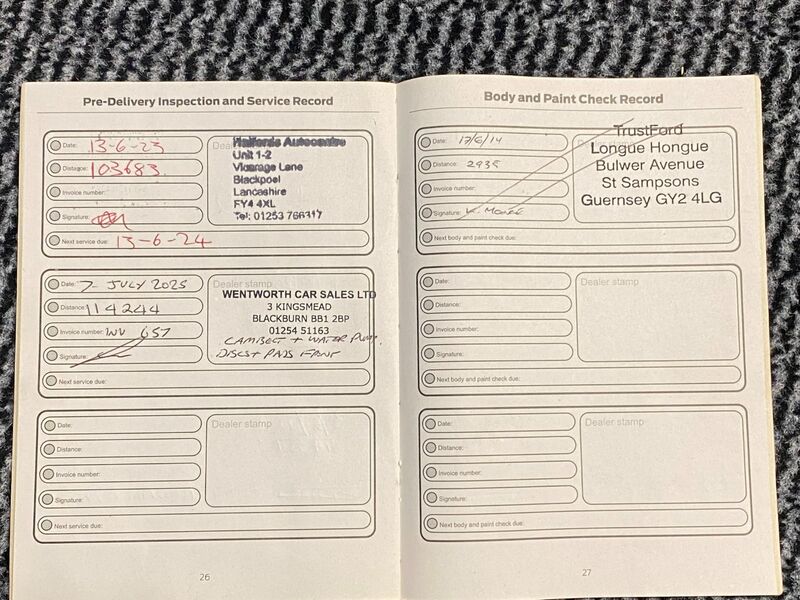 Pre-Delivery Inspection and Service Record
Date: 13-6-23
Distance: 103683
Invoice number:
Signature:
Next service due: 13-6-24
Dealer stamp
Halfords Autocentre
Unit 1-2
Vicarage Lane
Blackpool
Lancashire
FY4 4XL
Tel: 01253 766317
Date: 7- JULY 2025
Distance: 114244
Invoice number: WV 657
Signature:
Next service due:
Dealer stamp
WENTWORTH CAR SALES LTD
3 KINGSMEAD
BLACKBURN BB1 2BP
01254 51163
CAMBELT + WATER PUMP.
DISCS + PADS FRONT
Date:
Distance:
Invoice number:
Signature:
Next service due:
Dealer stamp
26
Body and Paint Check Record
Date: 17/6/14
Distance: 2935
Invoice number:
Signature:
Next body and paint check due:
TrustFord
Longue Hongue
Bulwer Avenue
St Sampsons
Guernsey GY2 4LG
Date:
Distance:
Invoice number:
Signature:
Next body and paint check due:
Dealer stamp
Date:
Distance:
Invoice number:
Signature:
Next body and paint check due:
Dealer stamp
27